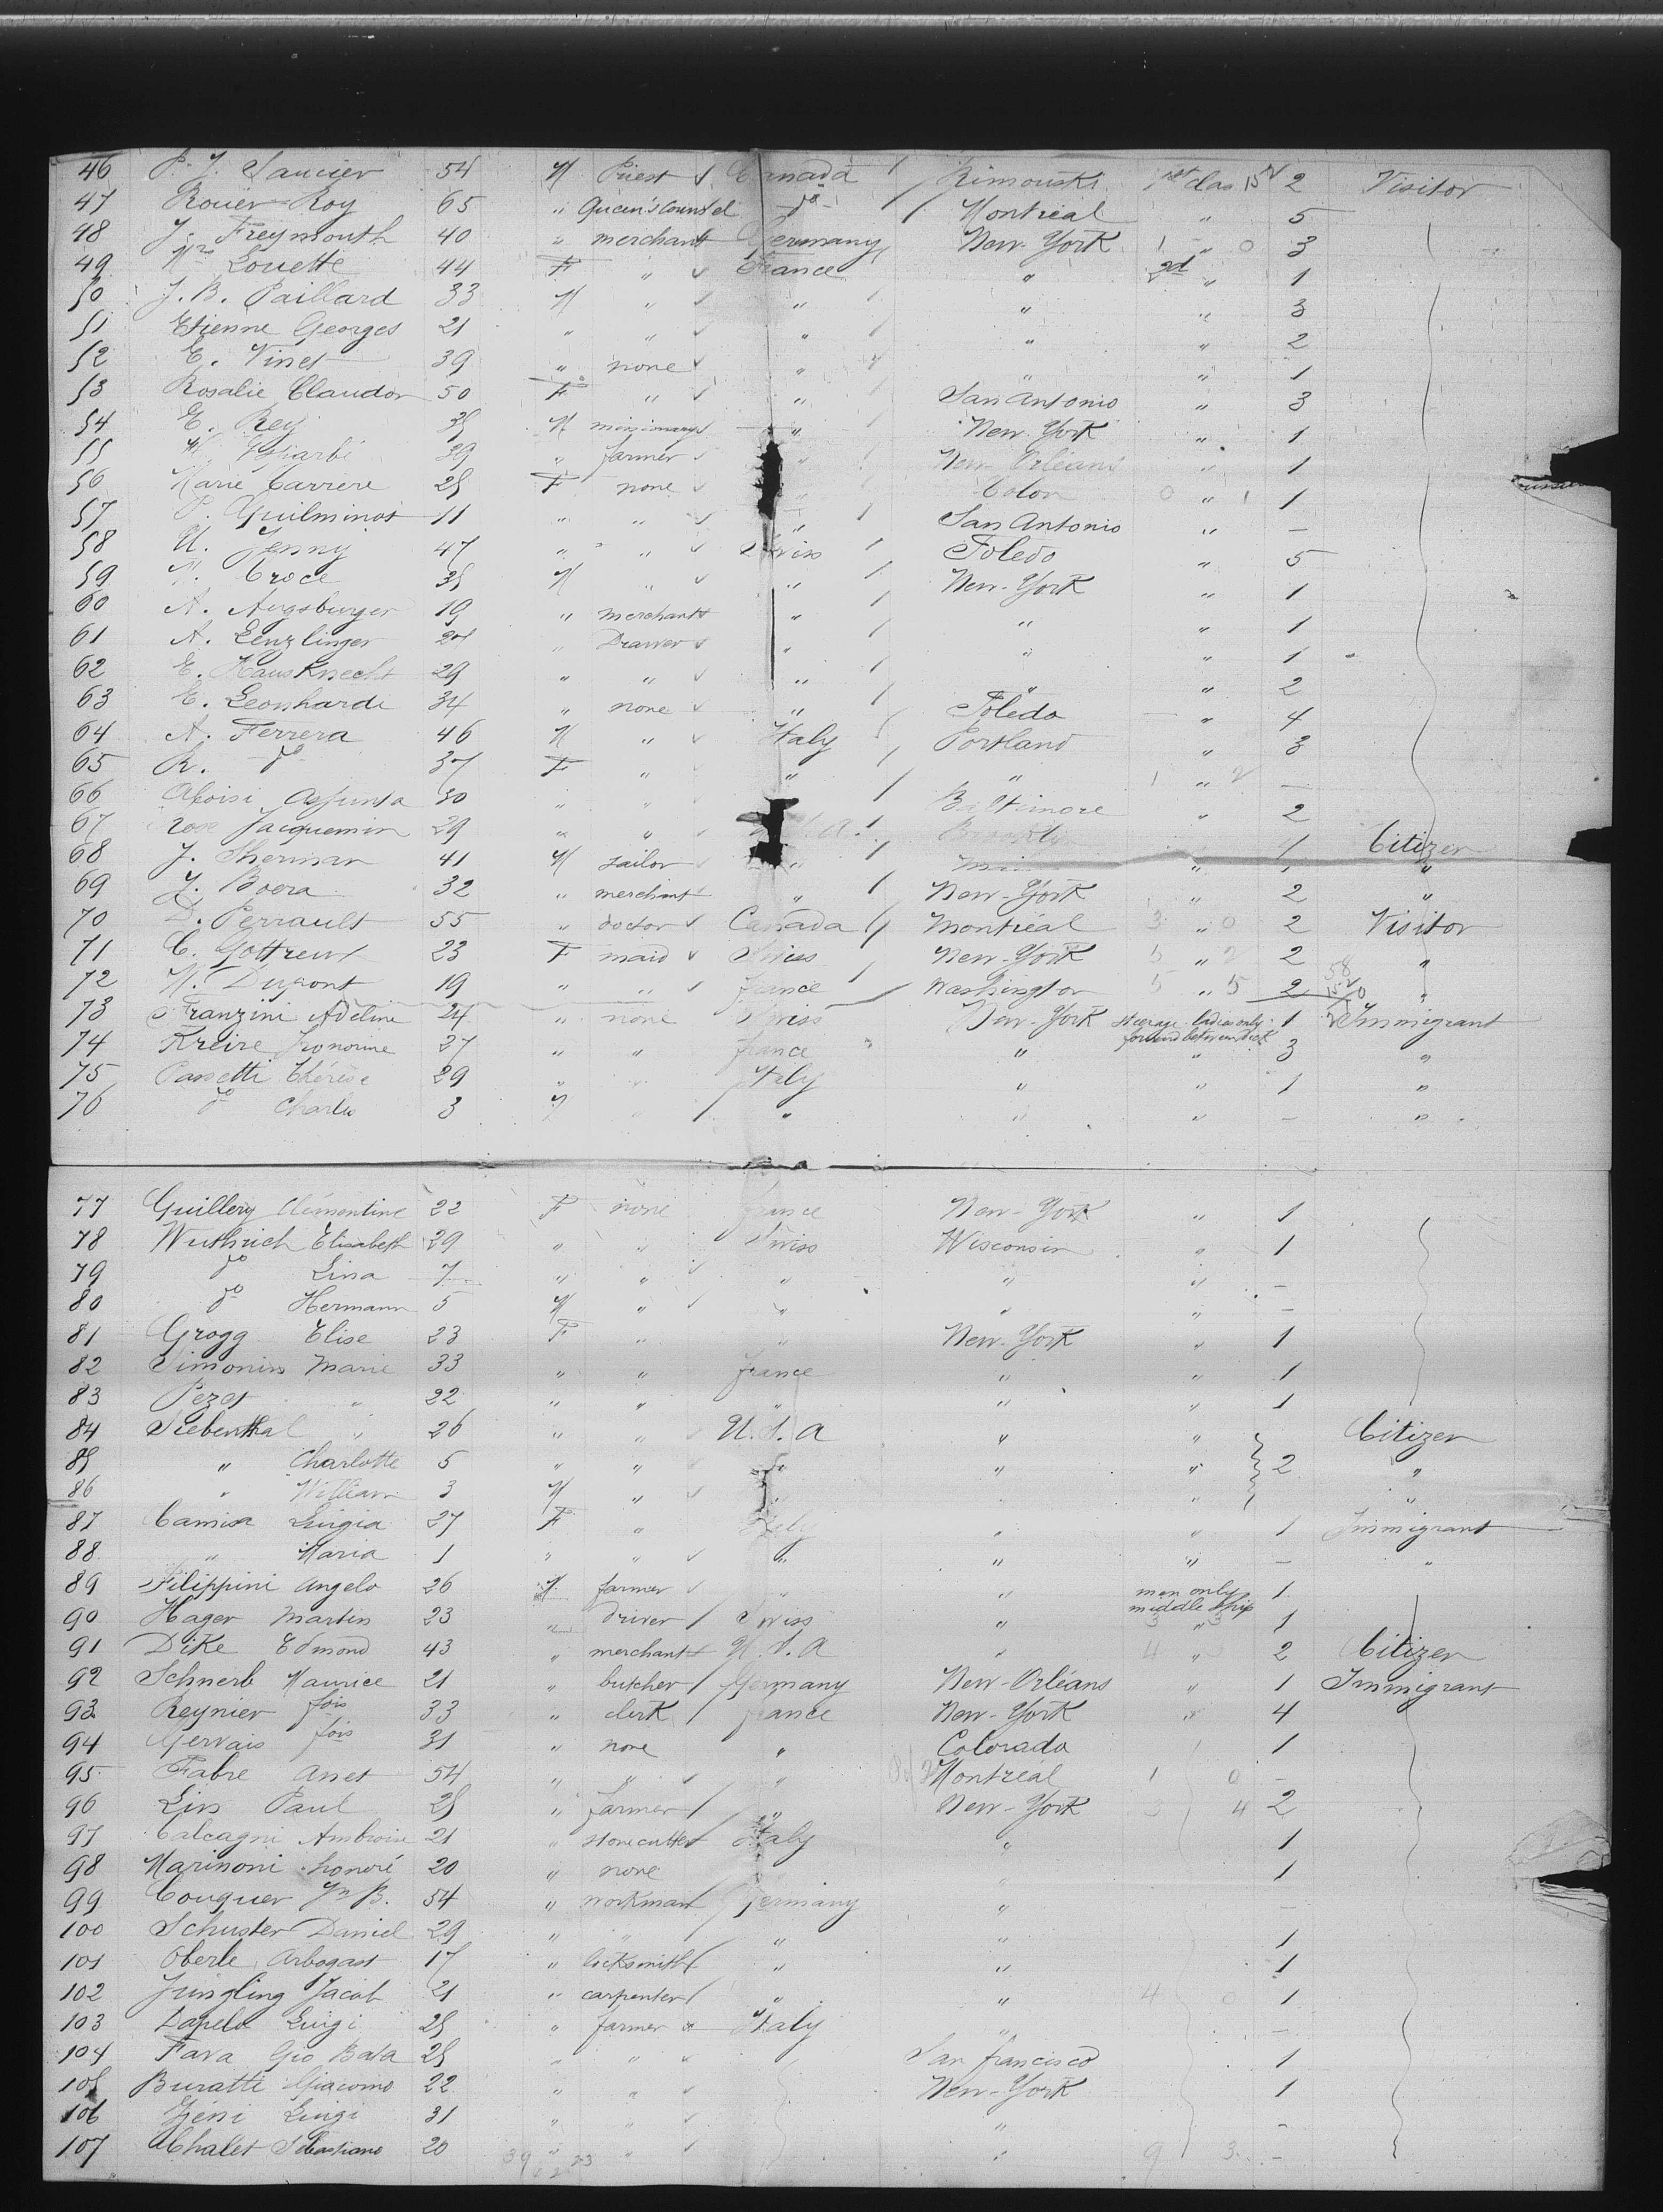 46 P. J. Saucier 54 M Priest Canada Rimouski 1st clas 2 Visitor
47 Rouër Roy 65 " Queen's Counsel do Montreal " 5
48 J. Freymouth 40 " merchant Germany New-York " 3
49 Mrs Louette 44 F " France " 2d " 1
50 J. B. Paillard 33 M " " " " 3
51 Etienne Georges 21 " " " " " 2
52 E. Vinet 39 " none " " " 1
53 Rosalie Claudon 50 F " " San Antonio " 3
54 E. Rey 35 M missionary " New-York " 1
55 39 " farmer " New-Orléans " 1
56 Marie Carrere 25 F none " Colon " 1
57 P. Guilminot 11 " " " San Antonio " —
58 U. Jenny 47 " " Swiss Toledo " 5
59 Croce 35 M " " New-York " 1
60 A. Augsburger 19 " merchant " " " 1
61 A. Lenzlinger 24 " Drawer " " " 1
62 E. Hausknecht 29 " " " " " 2
63 E. Leonhardi 34 " none " Toledo " 4
64 A. Ferrera 46 M " Italy Portland " 3
65 R. do 37 F " " " " —
66 Aloisi Assunta 30 " " Baltimore " 2
67 Rose Jacquemin 29 " " U.S.A. Brooklin 1 Citizen
68 J. Sherman 41 M sailor " " "
69 J. Boera 32 " merchant " New-York " 2 "
70 D. Perrault 55 " doctor Canada Montréal " 2 Visitor
71 C. Gottreux 23 F maid Swiss New-York " 2 "
72 M. Dupont 19 " " France Washington " 2 "
73 Franzini Adeline 24 " none Swiss New-York steerage ladies only 1 Immigrant
forward between deck
74 Kreire Honorine 27 " " france " " 3 "
75 Passetti Thérèse 29 " " Italy " " 1 "
76 do Charles 3 M " " " " — "
77 Guillery Clémentine 22 F none france New-York " 1
78 Wuthrich Elisabeth 29 " " Swiss Wisconsin " 1
79 do Lina 7 " " " " " —
80 do Hermann 5 M " " " " —
81 Grogg Elise 23 F " " New-York " 1
82 Simonin Marie 33 " " france " " 1
83 Pezet " 22 " " " " " 1
84 Siebenthal " 26 " " U.S.A " " Citizen
85 " Charlotte 5 " " " " " 2 "
86 " William 3 M " " " "
87 Camisa Luigia 27 F " Italy " " 1 Immigrant
88 " Maria 1 " " " " " — "
89 Filippini Angelo 26 M farmer " " men only 1
middle ship
90 Hager Martin 23 " driver Swiss " " 1
91 Dike Edmond 43 " merchant U.S.A " " 2 Citizen
92 Schnerb Maurice 21 " butcher Germany New-Orléans " 1 Immigrant
93 Reynier fois 33 " clerk france New-York " 4
94 Gervais fois 31 " none " Colorado 1
95 Fabre Anet 54 " " " Montreal —
96 Lin Paul 25 " farmer " New-York 2
97 Calcagni Ambroise 21 " stonecutter Italy " 1
98 Marinoni honoré 20 " none " 1
99 Couquer Jn B. 54 " workman Germany " —
100 Schuster Daniel 29 " " " " 1
101 Oberle Arbogast 17 " locksmith " " 1
102 Jungling Jacob 21 " carpenter " " 1
103 Dapelo Luigi 25 " farmer Italy " —
104 Fava Gio Bata 25 " " San francisco 1
105 Buratti Giacomo 22 " " New-York 1
106 Luigi 31 " " " —
107 Chalet Sebastiano 20 " " " —